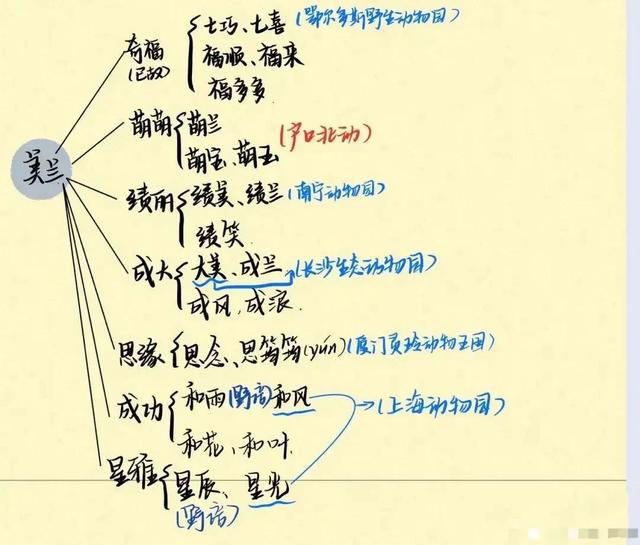 美兰
奇福 七巧、七喜 (鄂尔多斯野生动物园)
(已故) 福顺、福来
福多多
萌萌 萌兰
萌宝、萌玉 (户口北动)
绩丽 绩美、绩兰 (南宁动物园)
绩笑
成大 大美、成兰 (长沙生态动物园)
成风、成浪
思缘 思念、思筠筠(yún) (厦门灵玲动物王国)
成功 和雨(野培) 和风 (上海动物园)
和花、和叶
星雅 星辰、星光
(野培)